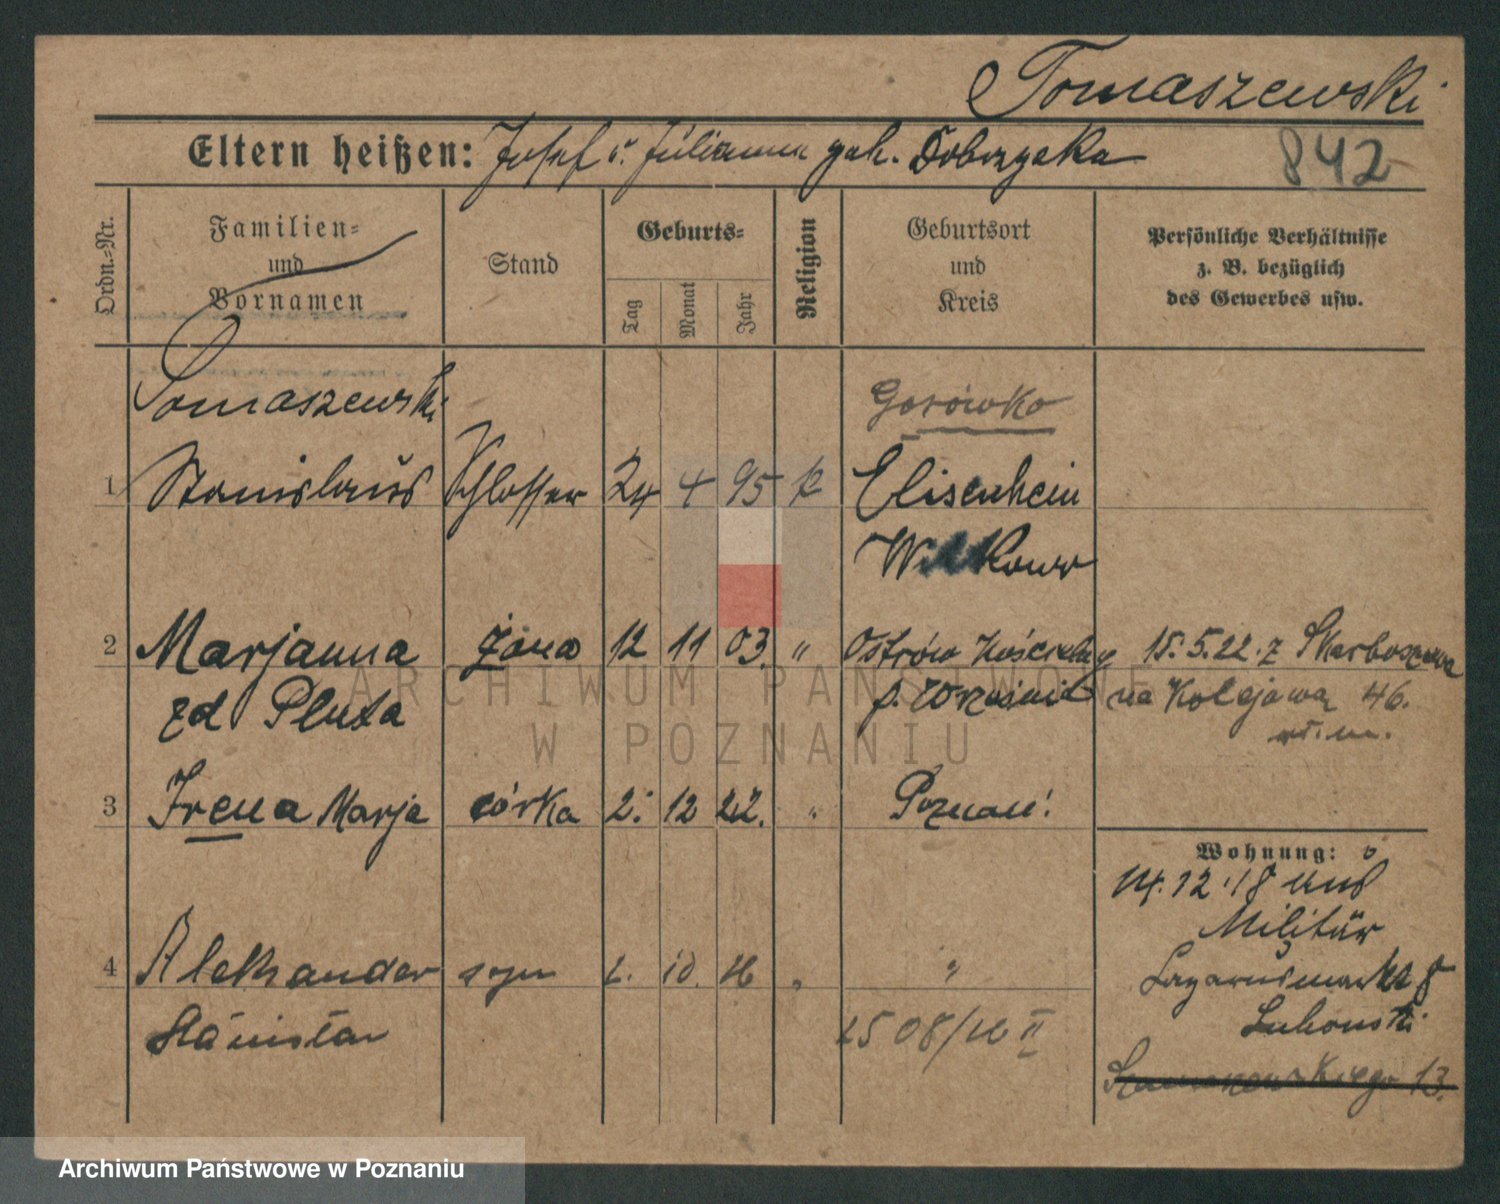 Tomaszewski
Eltern heißen: Josef u. Julianna geb. Dobrzycka
842
Ordn.-Nr.
Familien-
und
Vornamen
Stand
Geburts-
Tag
Monat
Jahr
Religion
Geburtsort
und
Kreis
Persönliche Verhältnisse
z. B. bezüglich
des Gewerbes usw.
Tomaszewski
Gorówko
1 Stanislaus Schlosser 24 4 95 k Elisenhein
Witkowo
2 Marjanna żona 12 11 03. " Ostrów Kościelny 15.5.22. z Skarboszewa
zd Pluta p. Września na Kolejową 46.
3 Irena Marja córka 2. 12 22. " Poznań!
Wohnung:
14.12.18 aus
Militär
4 Aleksander syn 10. " " Lazarusmarkt 8
Stanisław
13.
ARCHIWUM PAŃSTWOWE
W POZNANIU
Archiwum Państwowe w Poznaniu